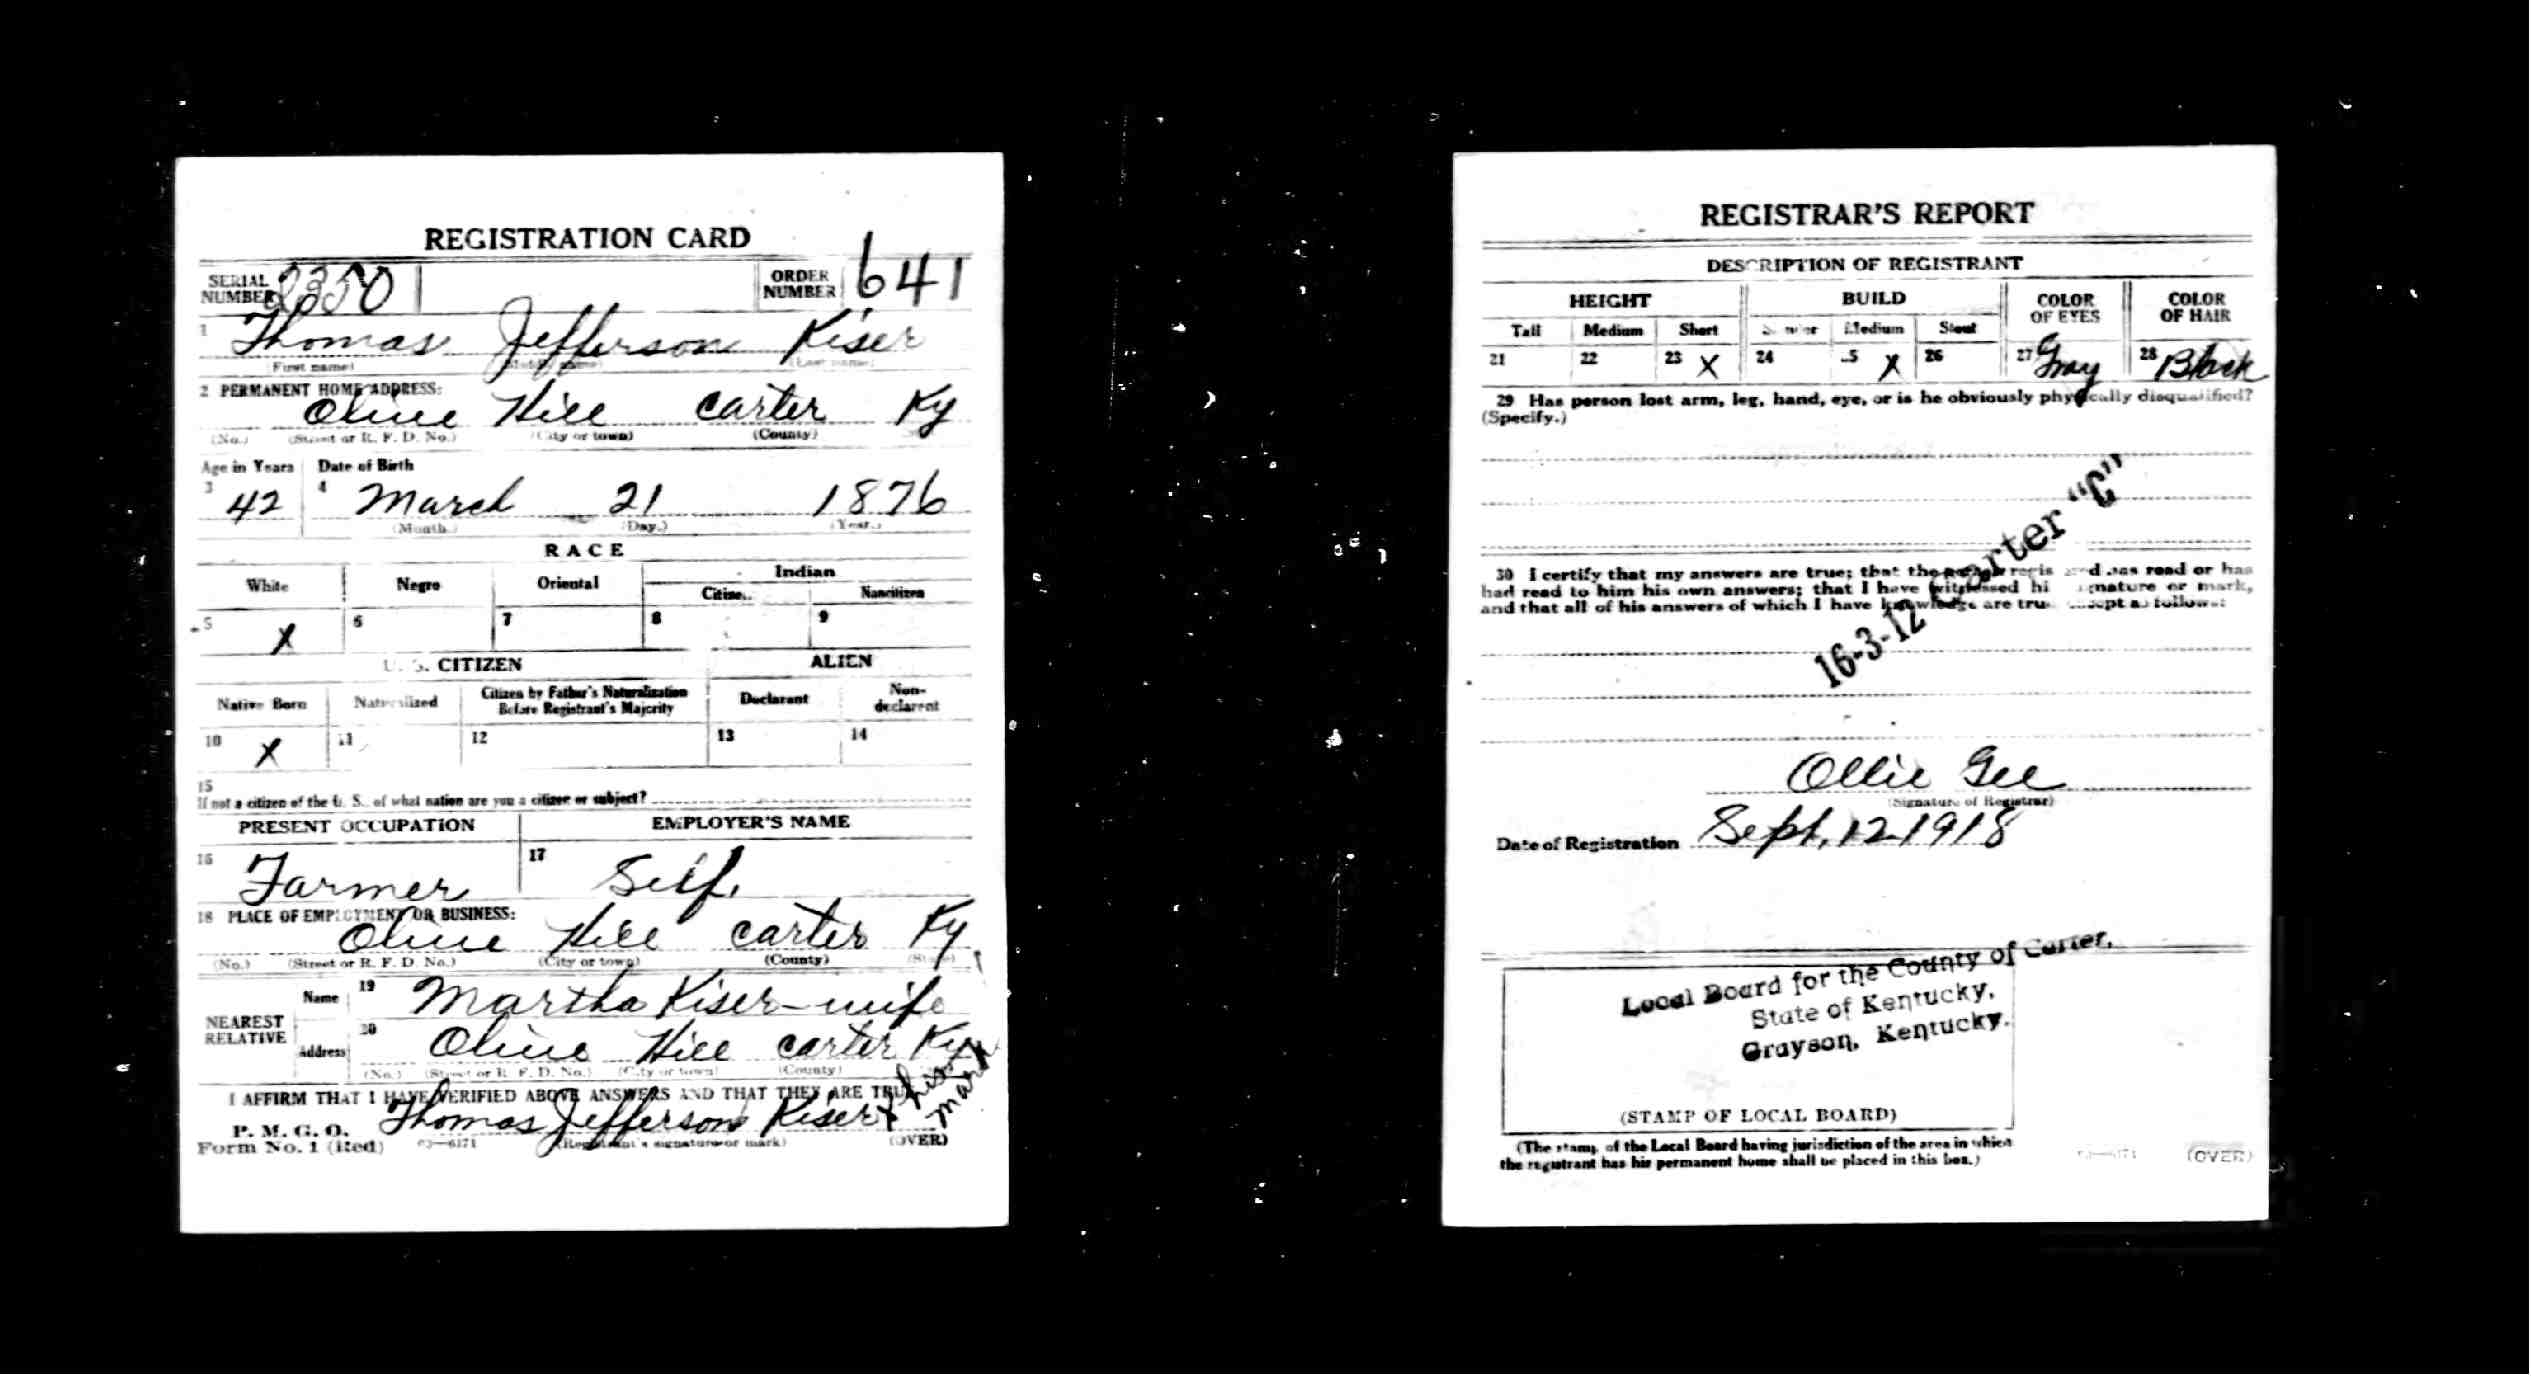 REGISTRATION CARD
SERIAL NUMBER 2350 ORDER NUMBER 641
1 Thomas Jefferson Kiser
(First name) (Middle name) (Last name)
2 PERMANENT HOME ADDRESS:
Olive Hill Carter Ky
(No.) (Street or R. F. D. No.) (City or town) (County)
Age in Years Date of Birth
3 42 4 March 21 1876
(Month.) (Day.) (Year.)
RACE
White Negro Oriental Indian
Citizen Noncitizen
5 X 6 7 8 9
U. S. CITIZEN ALIEN
Native Born Naturalized Citizen by Father's Naturalization Before Registrant's Majority Declarant Non-declarant
10 X 11 12 13 14
15
If not a citizen of the U. S., of what nation are you a citizen or subject?
PRESENT OCCUPATION EMPLOYER'S NAME
16 Farmer 17 Self.
18 PLACE OF EMPLOYMENT OR BUSINESS:
Olive Hill Carter Ky
(No.) (Street or R. F. D. No.) (City or town) (County) (State)
NEAREST RELATIVE Name 19 Martha Kiser-wife
Address 20 Olive Hill Carter Ky
(No.) (Street or R. F. D. No.) (City or town) (County)
I AFFIRM THAT I HAVE VERIFIED ABOVE ANSWERS AND THAT THEY ARE TRUE
P. M. G. O.
Form No. 1 (Red) 03—6171 Thomas Jefferson Kiser X his mark
(Registrant's signature or mark) (OVER)
REGISTRAR'S REPORT
DESCRIPTION OF REGISTRANT
HEIGHT BUILD COLOR OF EYES COLOR OF HAIR
Tall Medium Short Slender Medium Stout
21 22 23 X 24 25 X 26 27 Gray 28 Black
29 Has person lost arm, leg, hand, eye, or is he obviously physically disqualified?
(Specify.)
30 I certify that my answers are true; that the person registered has read or has
had read to him his own answers; that I have witnessed his signature or mark,
and that all of his answers of which I have knowledge are true, except as follows:
16-3-12 Carter "C"
Ollie Gee
(Signature of Registrar)
Date of Registration Sept, 12-1918
Local Board for the County of Carter,
State of Kentucky,
Grayson, Kentucky.
(STAMP OF LOCAL BOARD)
(The stamp of the Local Board having jurisdiction of the area in which
the registrant has his permanent home shall be placed in this box.)
03—6171 (OVER)